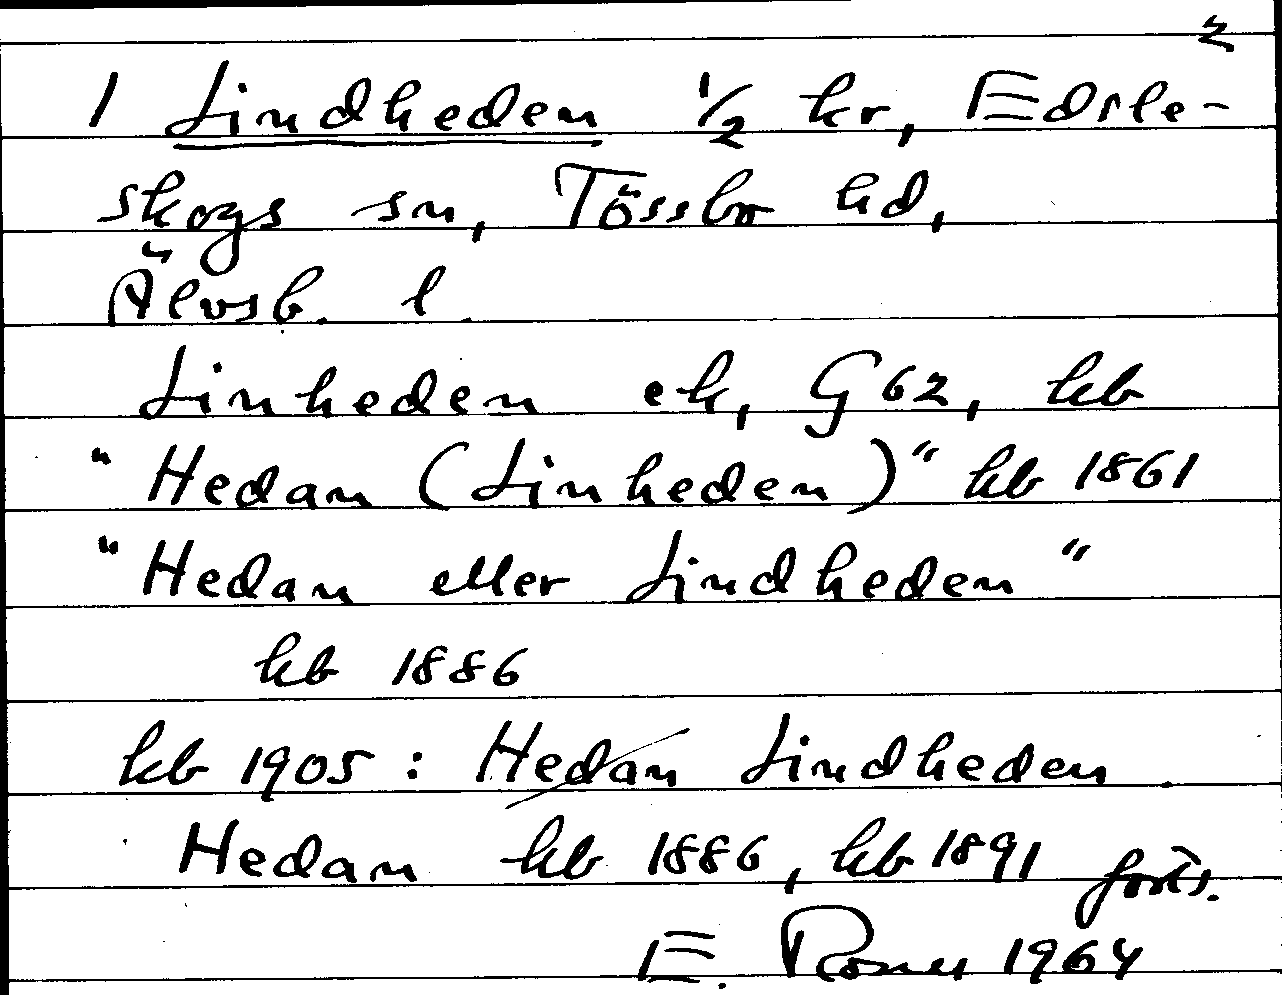 2
1 Lindheden 1/2 kr, Edsle-
skogs sn, Tössbo hd,
Älvsb. l.
Linheden ek, G 62, kb
"Hedan (Linheden)" kb 1861
"Hedan eller Lindheden"
kb 1886
kb 1905: Hedan Lindheden.
Hedan kb 1886, kb 1891 forts.
E. 1964